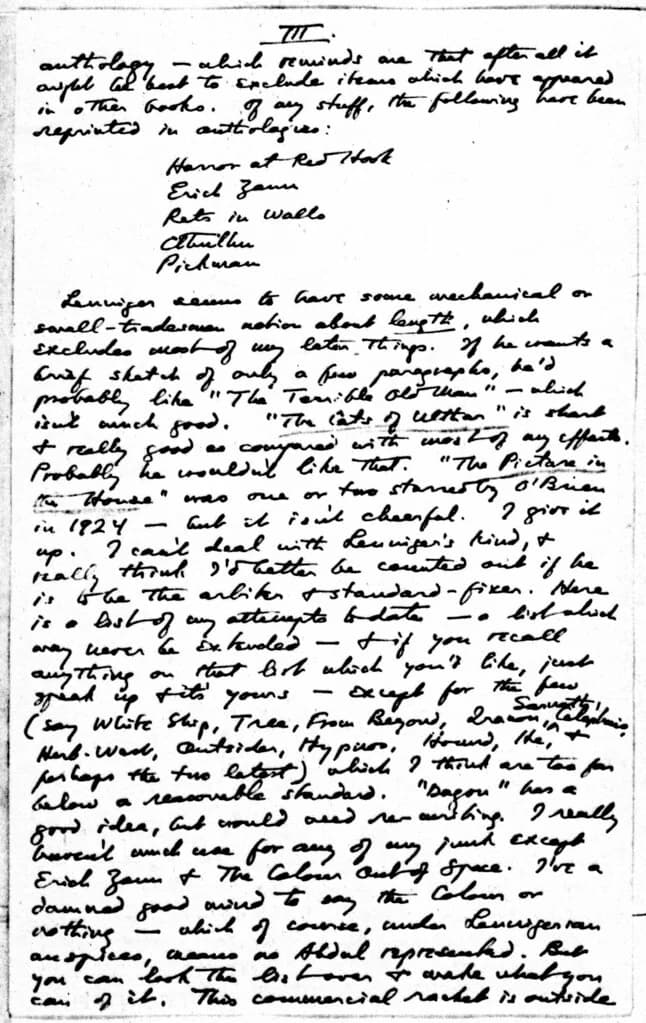 III.
anthology — which reminds me that after all it
might be best to exclude items which have appeared
in other books. Of my stuff, the following have been
reprinted in anthologies:
Horror at Red Hook
Erich Zann
Rats in Walls
Cthulhu
Pickman
Lenniger seems to have some mechanical or
small-tradesman notion about length, which
excludes most of my later things. If he wants a
brief sketch of only a few paragraphs, he'd
probably like "The Terrible Old Man" — which
isn't much good. "The Cats of Ulthar" is short
& really good as compared with most of my efforts.
Probably he wouldn't like that. "The Picture in
the House" was one or two starred by O'Brien
in 1924 — but it isn't cheerful. I give it
up. I can't deal with Lenniger's kind, &
really think I'd better be counted out if he
is to be the arbiter & standard-fixer. Here
is a list of my attempts to date — a list which
may never be extended — & if you recall
anything on that list which you'd like, just
speak up & it's yours — except for the few
(say White Ship, Tree, From Beyond, Sarnath, Celephais,
Herb. West, Outsider, Hypnos, Hound, He, &
perhaps the two latest) which I think are too far
below a reasonable standard. "Dagon" has a
good idea, but would need re-writing. I really
haven't much use for any of my junk except
Erich Zann & The Colour Out of Space. I've a
damned good mind to say the Colour or
nothing — which of course, under Lennigerian
auspices, means no Abdul represented. But
you can look the list over & make what you
can of it. This commercial racket is outside